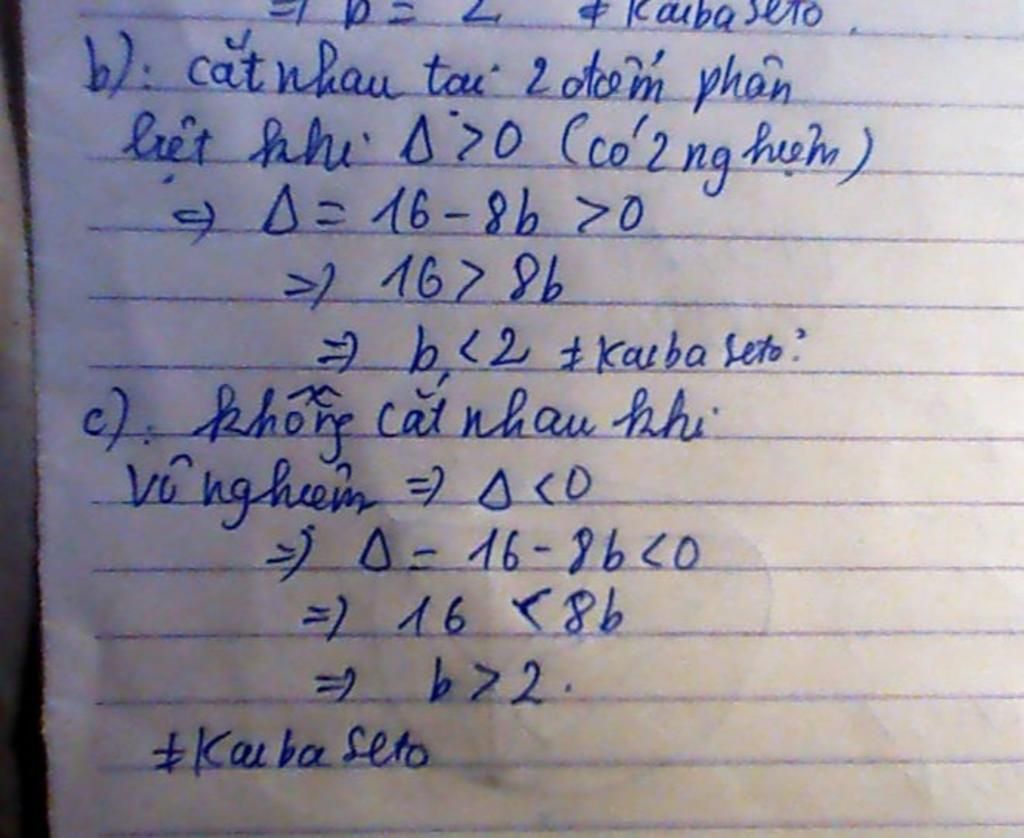 => b = 2 ‡ Kaiba Seto.
b): cắt nhau tại 2 điểm phân
biệt khi Δ > 0 (có 2 nghiệm)
=> Δ = 16 - 8b > 0
=> 16 > 8b
=> b < 2 ‡ Kaiba Seto:
c): không cắt nhau khi
vô nghiệm => Δ < 0
=> Δ = 16 - 8b < 0
=> 16 < 8b
=> b > 2.
‡ Kaiba Seto